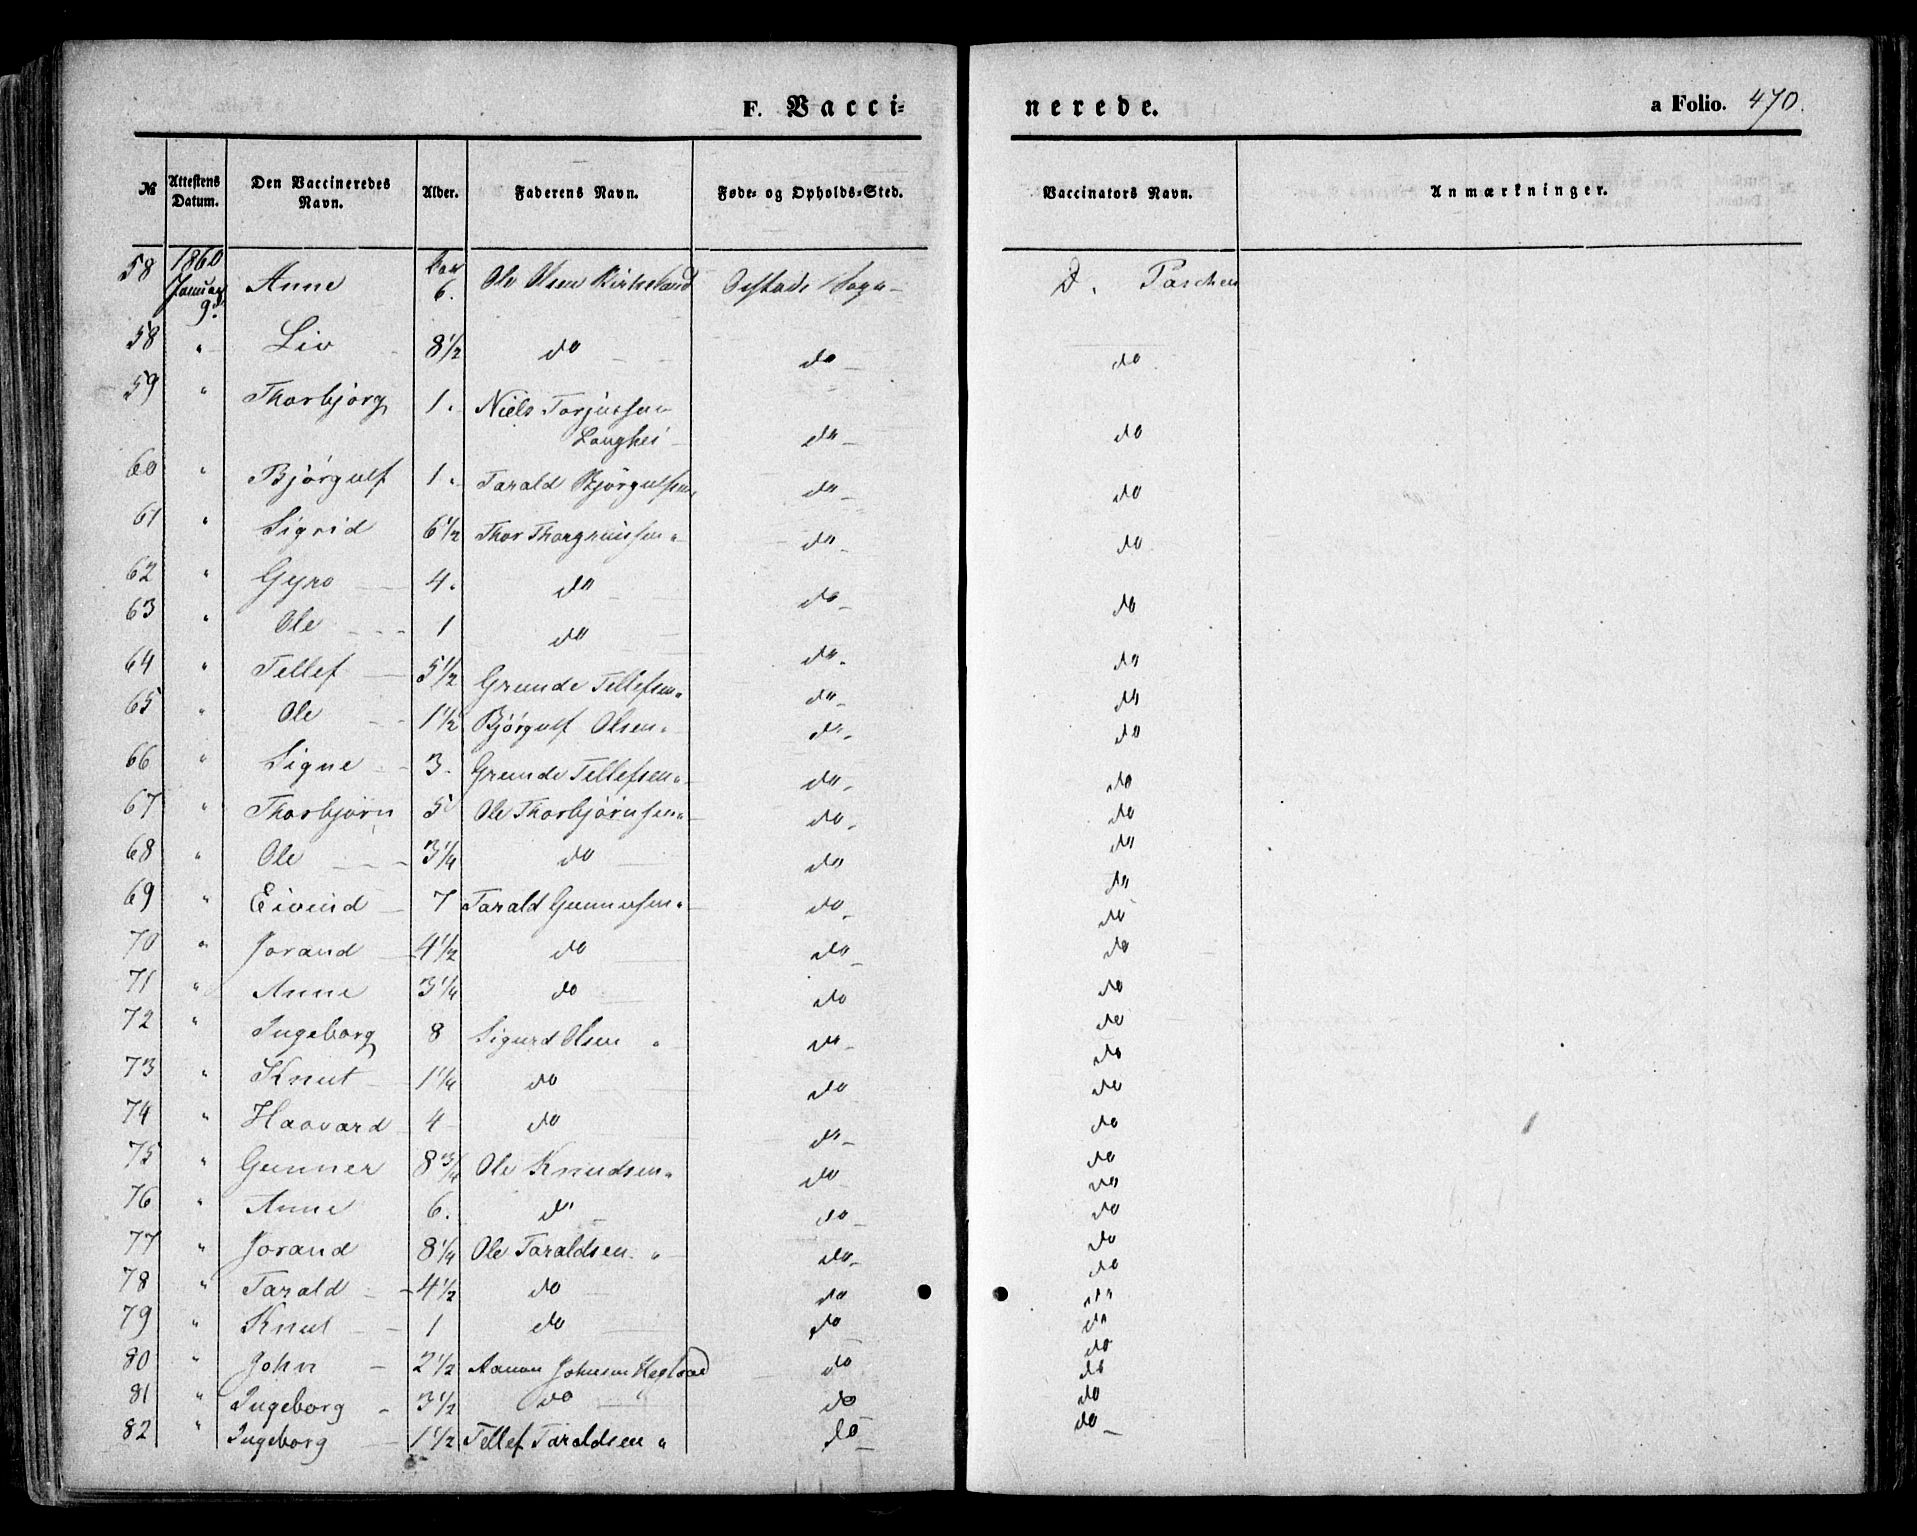 F. Vacci-nerede. a Folio. 470.
№ Attestens Datum. Den Vaccineredes Navn. Alder. Faderens Navn. Føde- og Opholds-Sted. Vaccinators Navn. Anmærkninger.
58 1860 Januar 9. Anne 6. Ole Olsen Birkeland Sogn D. Paschen
58 " Liv 8 1/2 do do do
59 " Thorbjørg 1. Niels Torjussen
Langhei do do
60 " Bjørgulf 1. Tarald Bjørgulfsen do do
61 " Sigrid 6 1/2 Thor do do
62 " Gyro 4. do do do
63 " Ole 1 do do do
64 " Tellef 5 1/2 Grunde Tellefsen do do
65 " Ole 1 1/2 Bjørgulf Olsen do do
66 " Signe 3. Grunde Tellefsen do do
67 " Thorbjørn 5 Ole Thorbjørnsen do do
68 " Ole 3 1/4 do do do
69 " Eivind 7 Tarald Gunnersen do do
70 " Jorand 4 1/2 do do do
71 " Anne 3 1/4 do do do
72 " Ingeborg 8 Sigurd Olsen " do do
73 " Knut 1 1/4 do do do
74 " Haavard 4 do do do
75 " Gunner 8 3/4 Ole Knudsen do do
76 " Anne 6. do do do
77 " Jorand 8 1/4 Ole Taraldsen " do do
78 " Tarald 4 1/2 do do do
79 " Knut 1 do do do
80 " John 2 1/2 Aanon Johnsen do do
81 " Ingeborg 3 1/2 do " do do
82 " Ingeborg 1 1/2 Tellef Taraldsen " do do